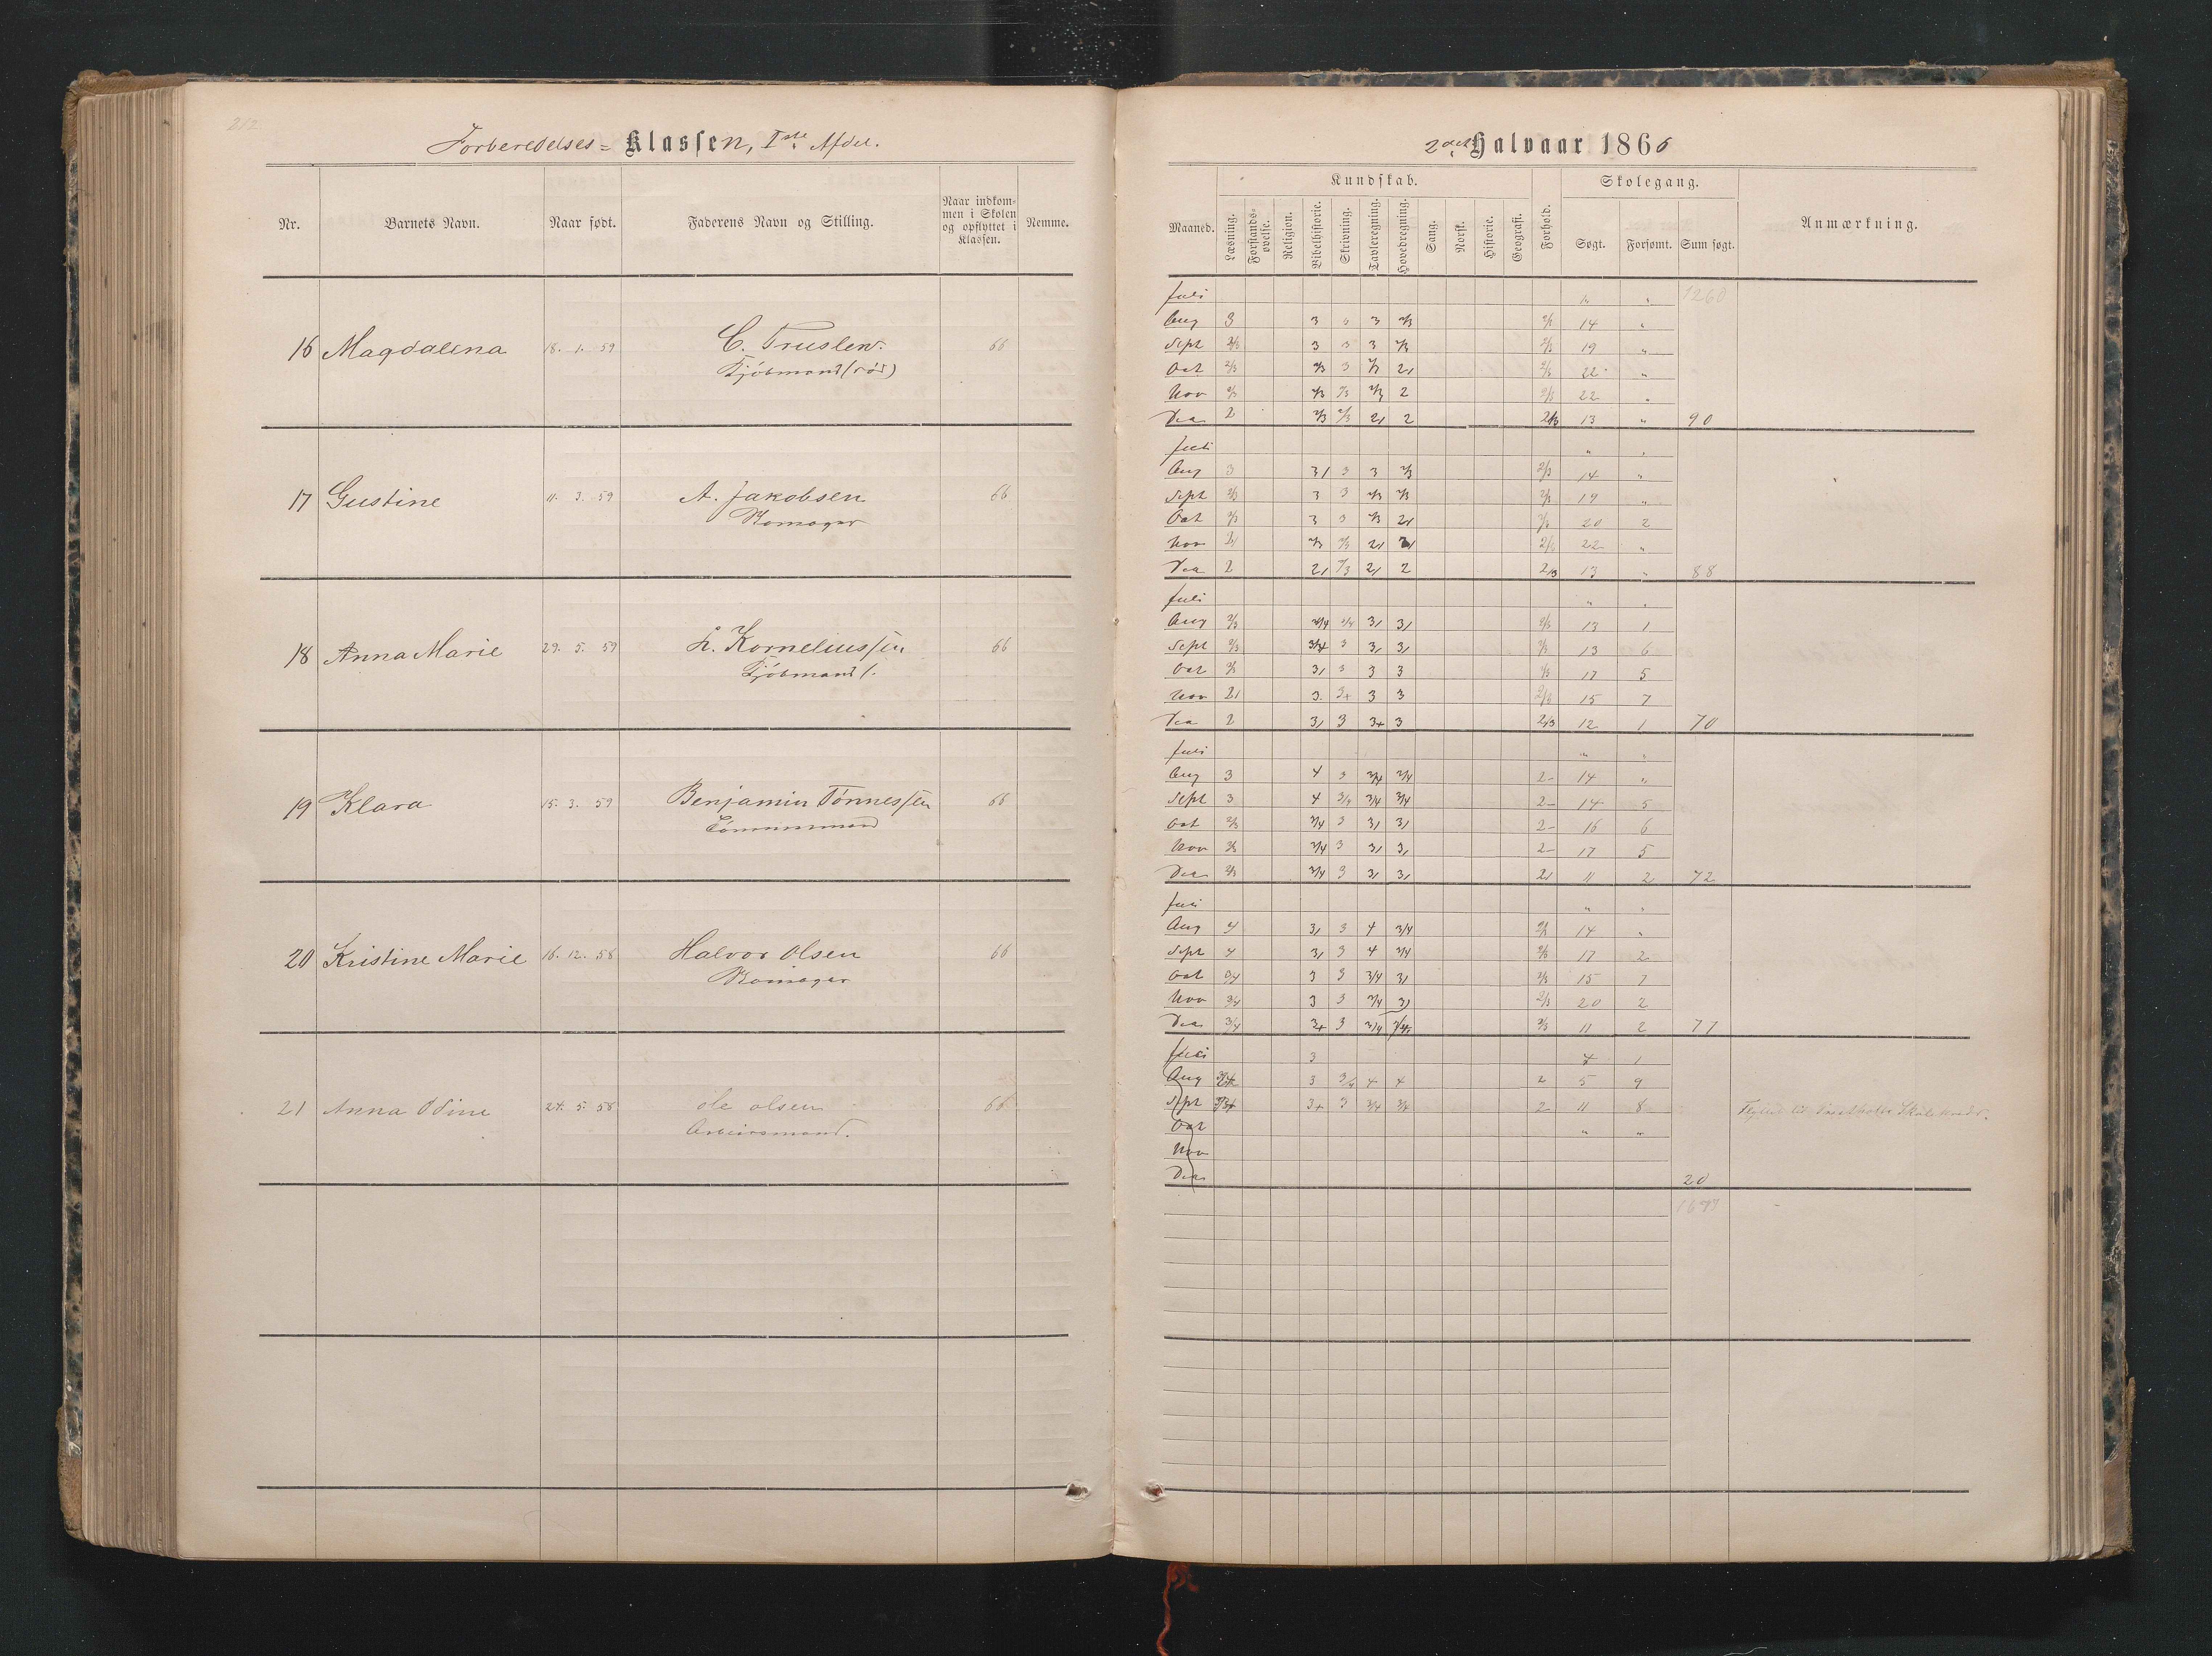 212
Forberedelses= Klassen, Iste Afdel.
Nr. Barnets Navn. Naar født. Faderens Navn og Stilling. Naar indkommen i Skolen og opflyttet i Klassen. Nemme.
16 Magdalena 18. 1. 59 C. Truslew. 66
Kjöbmand (död)
17 Gustine 11. 3. 59 A. Jakobsen 66
18 Anna Marie 29. 5. 59 L. Korneliussen 66
Kjöbmand
19 Klara 15. 3. 59 Benjamin Tönnessen 66
Tömmermand
20 Kristine Marie 16. 12. 58 Halvor Olsen 66
21 Anna Odine 24. 5. 58 Ole Olsen 66
Arbeidsmand.
2det Halvaar 1866
Kundskab. Skolegang.
Maaned. Læsning. Forstandsøvelse. Religion. Bibelhistorie. Skrivning. Tavleregning. Hovedregning. Sang. Norsk. Historie. Geografi. Forhold. Søgt. Forsømt. Sum søgt. Anmærkning.
Juli " " 1260
Aug 3 3 3 3 2/3 2/3 14 "
Sept 2/3 3 3 3 2/3 2/3 19 "
Oct 2/3 2/3 3 2/3 21 2/3 22 "
Nov 2/3 2/3 2/3 2/3 2 2/3 22 "
Dec 2 2/3 2/3 21 2 2/3 13 " 90
Juli " "
Aug 3 31 3 3 2/3 2/3 14 "
Sept 2/3 3 3 2/3 2/3 2/3 19 "
Oct 2/3 3 3 2/3 21 2/3 20 2
Nov 21 2/3 2/3 21 21 2/3 22 "
Dec 2 21 2/3 21 2 2/3 13 " 88
Juli " "
Aug 2/3 3/4 3/4 31 31 2/3 13 1
Sept 2/3 3/4 3 31 31 2/3 13 6
Oct 2/3 31 3 3 3 2/3 17 5
Nov 21 3 3+ 3 3 2/3 15 7
Dec 2 31 3 3+ 3 2/3 12 1 70
Juli " "
Aug 3 4 3 3/4 3/4 2- 14 "
Sept 3 4 3/4 3/4 3/4 2- 14 5
Oct 2/3 3/4 3 31 31 2- 16 6
Nov 2/3 3/4 3 31 31 2- 17 5
Dec 2/3 3/4 3 31 31 21 11 2 72
Juli " "
Aug 4 31 3 4 3/4 2/3 14 "
Sept 4 31 3 4 3/4 2/3 17 2
Oct 3/4 3 3 3/4 31 2/3 15 7
Nov 3/4 3 3 3/4 31 2/3 20 2
Dec 3/4 3+ 3 3/4 3/4 2/3 11 2 77
Juli 3 4 1
Aug 3/4 3 3/4 4 4 2 5 9
Sept 3+ 3 3/4 3/4 2 11 8
Oct " "
Nov
Dec 20
1677